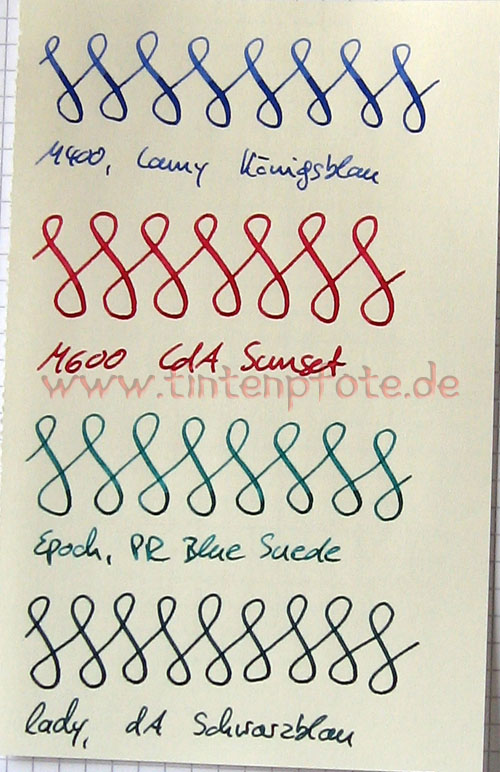 M400, Lamy Königsblau
M600 CdA Sunset
www.tintenpfote.de
Epoch, PR Blue Suede
lady, dA Schwarzblau